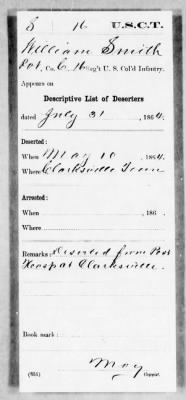 S 16 U.S.C.T.
William Smith
Pvt, Co. C, 16 Reg't U. S. Col'd Infantry.
Appears on
Descriptive List of Deserters
dated July 31, 1864.
Deserted:
When May 10, 1864.
Where Clarksville Tenn
Arrested:
When , 186 .
Where
Remarks: Deserted from Post
Hosp at Clarksville.
Book mark:
May
(655) Copyist.